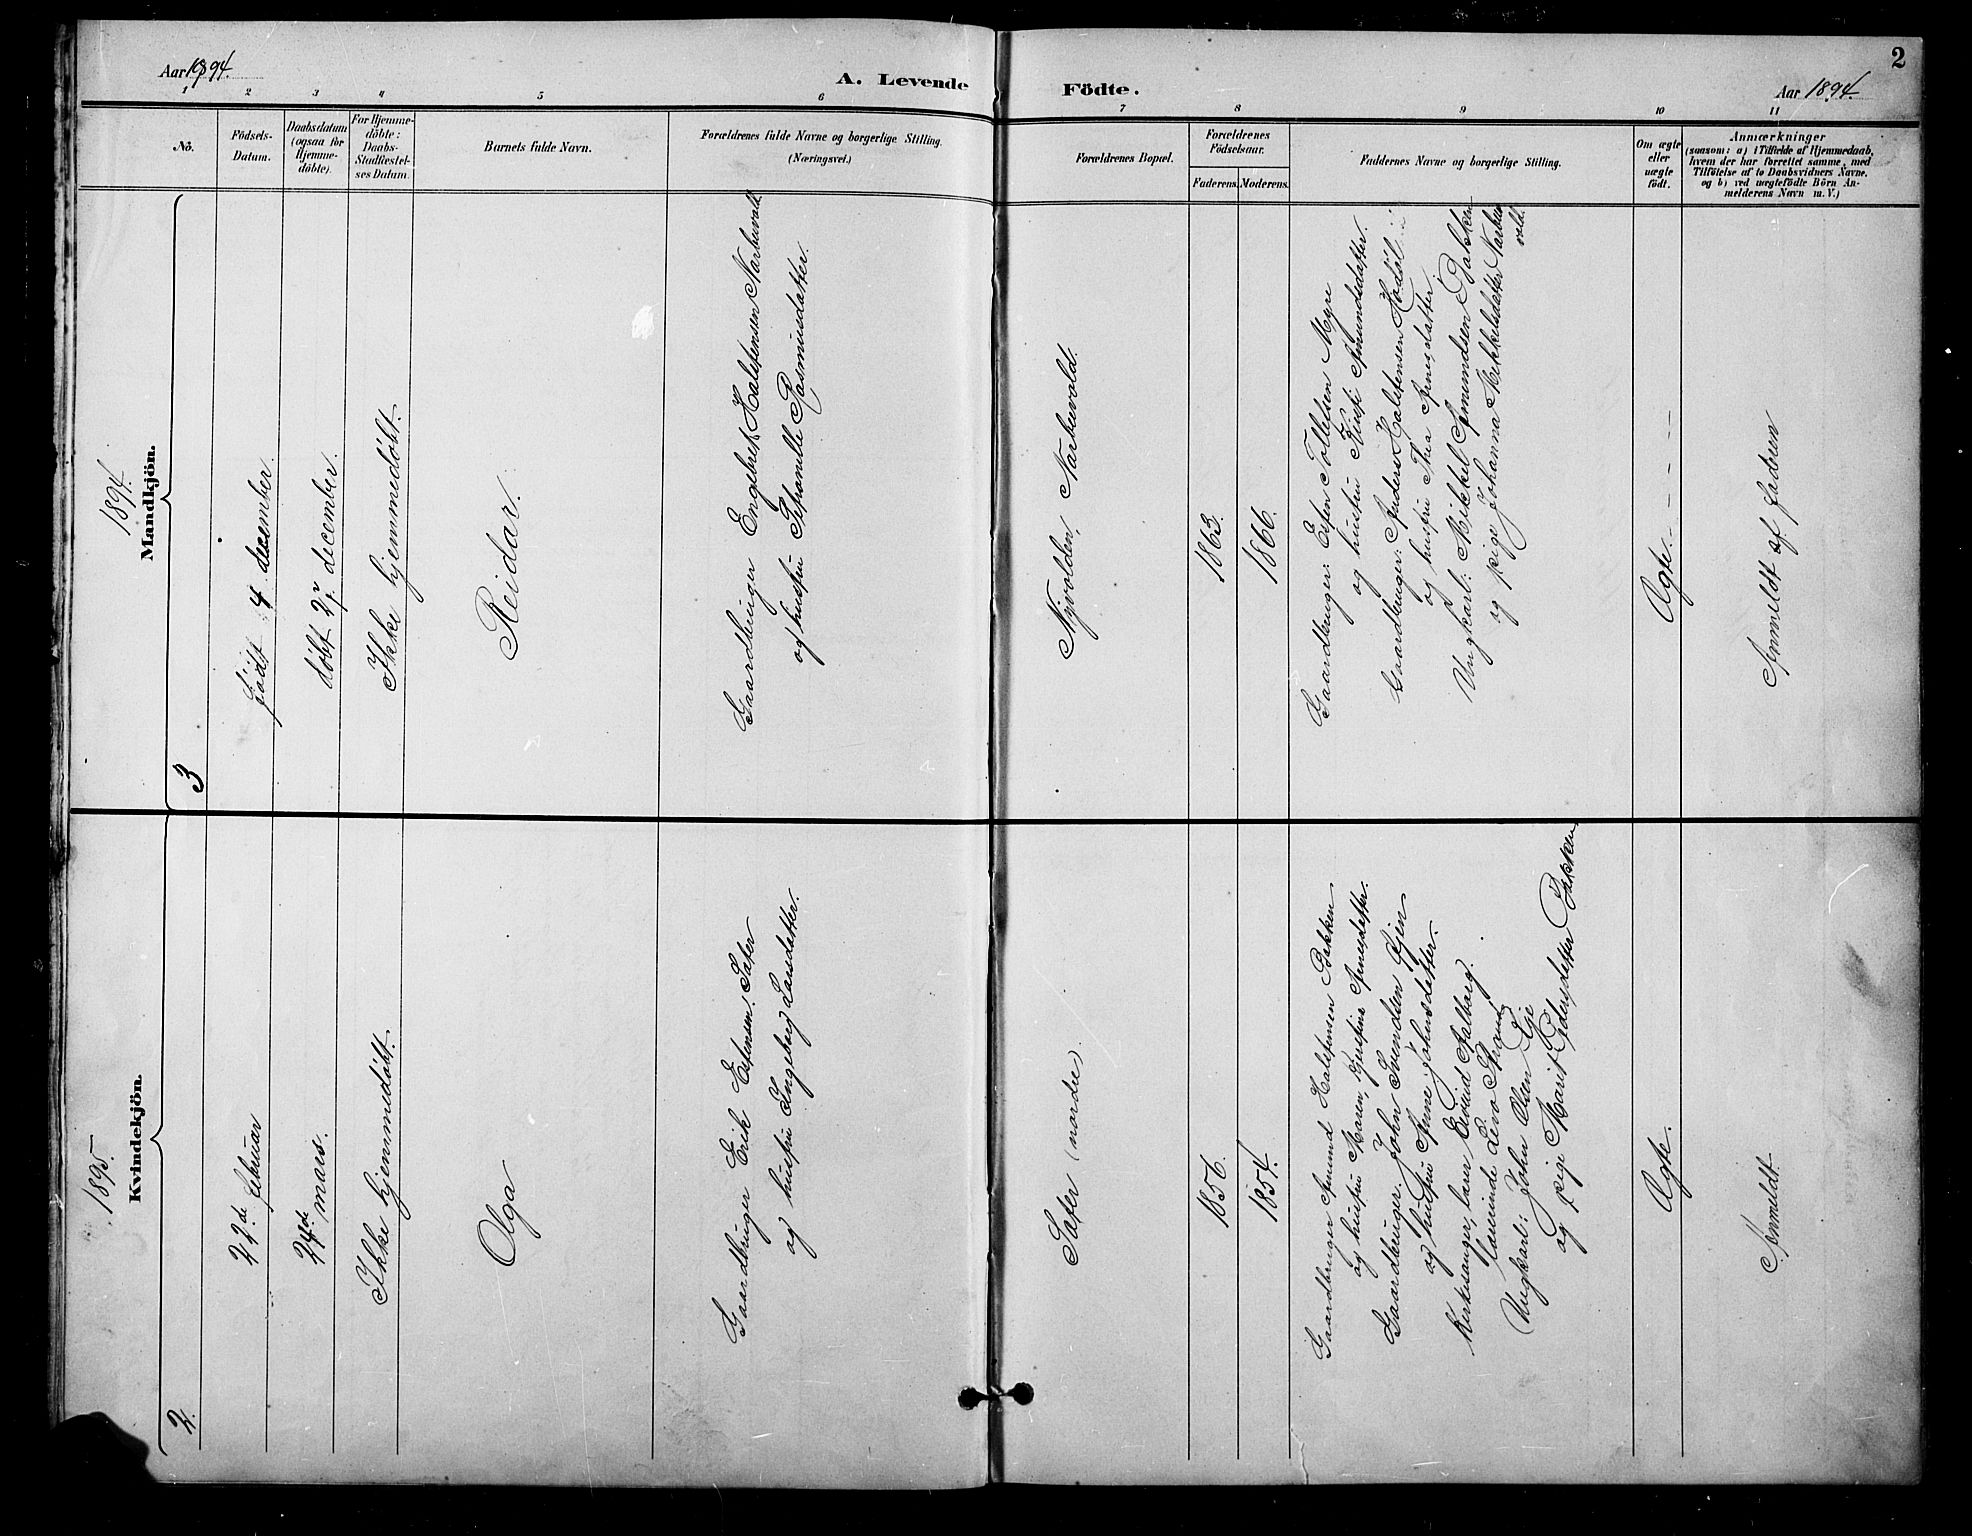 Aar 1894.
A. Levende
Födte.
Aar 1894.
2
1 2 3 4 5 6 7 8 9 10 11
No.
Födsels-
Datum.
Daabsdatum
(ogsaa for
Hjemme-
döbte).
For Hjemme-
döbte:
Daabs-
Stadfæstel-
ses Datum.
Barnets fulde Navn.
Forældrenes fulde Navne og borgerlige Stilling.
(Næringsvei.)
Forældrenes Bopæl.
Forældrenes
Födselsaar.
Faderens.
Moderens.
Faddernes Navne og borgerlige Stilling.
Om ægte
eller
uægte
födt.
Anmærkninger
(saasom: a) i Tilfælde af Hjemmedaab,
hvem der har forrettet samme, med
Tilföielse af to Daabsvidners Navne,
og b) ved uægtefödte Börn An-
melderens Navn m. V.)
1894.
Mandkjön.
3
født 4 december
døbt 27 december.
Ikke hjemmedøbt.
Reidar.
Gaardbruger Engebret Halstensen Narbuvold
og hustru Petronille Rasmusdatter
Nyvolden, Narbuvold.
1863.
1866.
Gaardbruger: Esten Tollefsen Myre
og hustru Amundsdatter.
Gaardbruger: Anders Halstensen
og hustru Arnesdatter.
Ungkarl: Mikkel Amundsen Bakken
og pige Johanna Mikkelsdatter Narbu
vold.
Ægte. - - - -
Anmeldt af faderen
1895.
Kvindekjön.
2.
22de februar
24de mars.
Ikke hjemmedøbt.
Olga
Gaardbruger Erik Estensen Sæter
og hustru Ingeborg Larsdatter.
Sæter (nordre)
1856.
1854.
Gaardbruger Amund Halstensen Bakken
og hustru Maren Arnesdatter.
Gaardbruger. John Svendsen Gjen
og hustru Anne Johnsdatter.
Kirkesanger, lærer Eivind Aalborg.
Ungkarl: John Olsen Eje
og pige Marit Pedersdatter Bakken
Ægte.
Anmeldt.